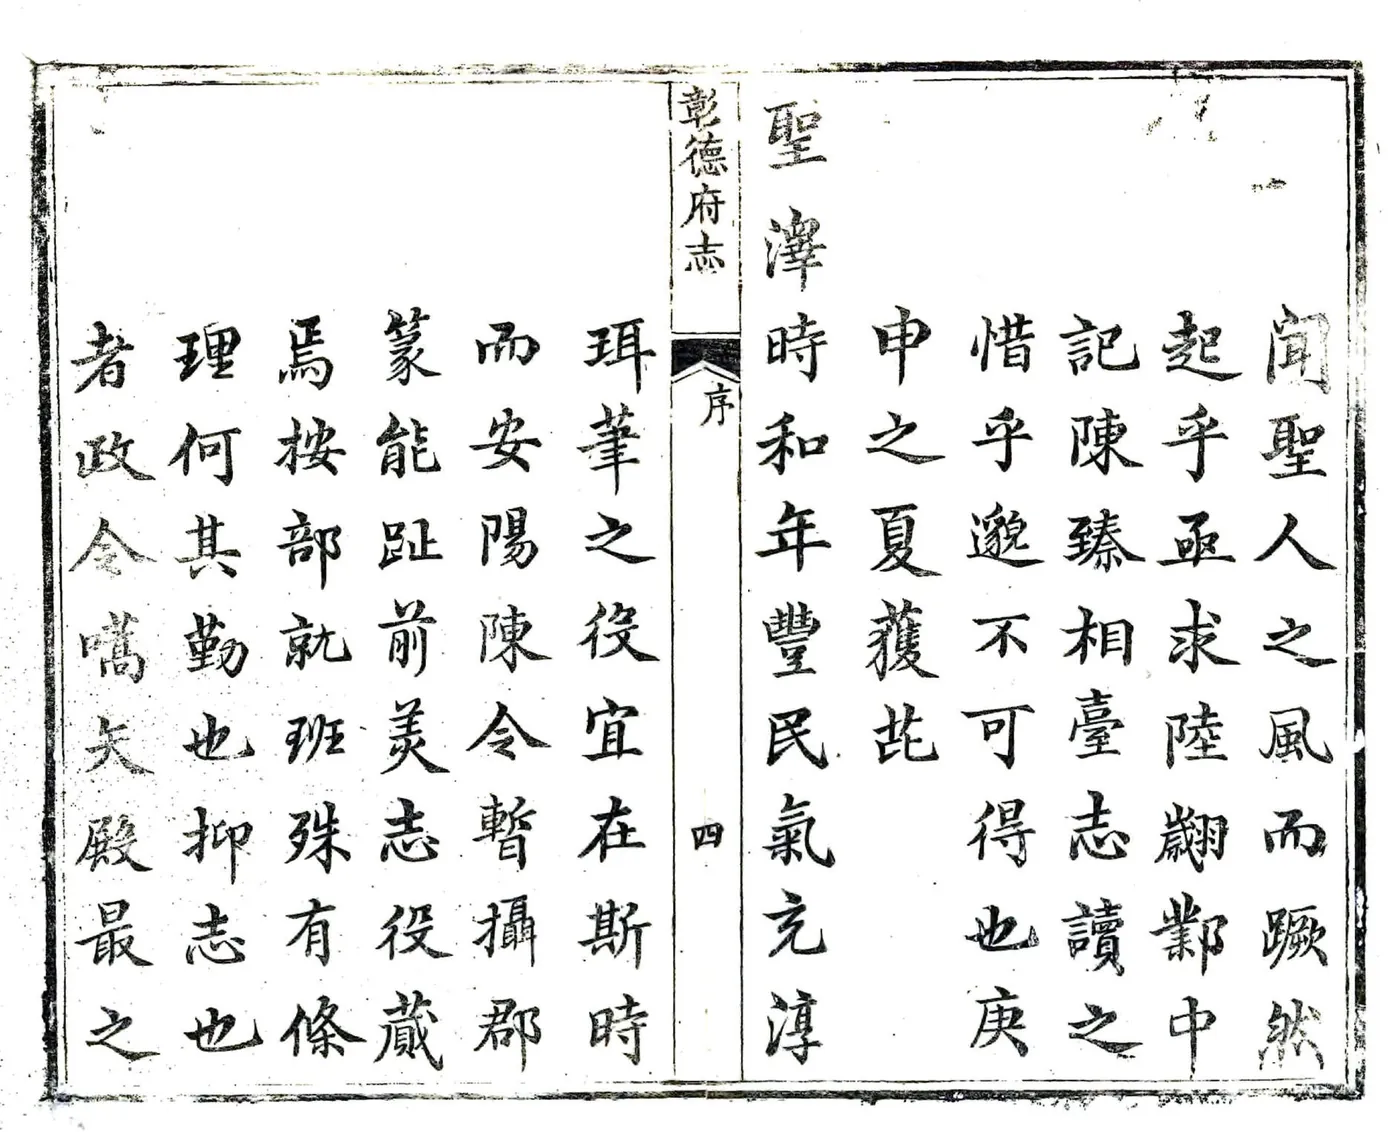 聞聖人之風而蹶然
起乎亟求陸翽鄴中
記陳臻相臺志讀之
惜乎邈不可得也庚
申之夏獲茈
聖澤時和年豐民氣充淳
彰德府志
序
四
珥筆之役宜在斯時
而安陽陳令暫攝郡
篆能趾前羙志役蕆
焉按部就班殊有條
理何其勤也抑志也
者政令嚆矢殿最之